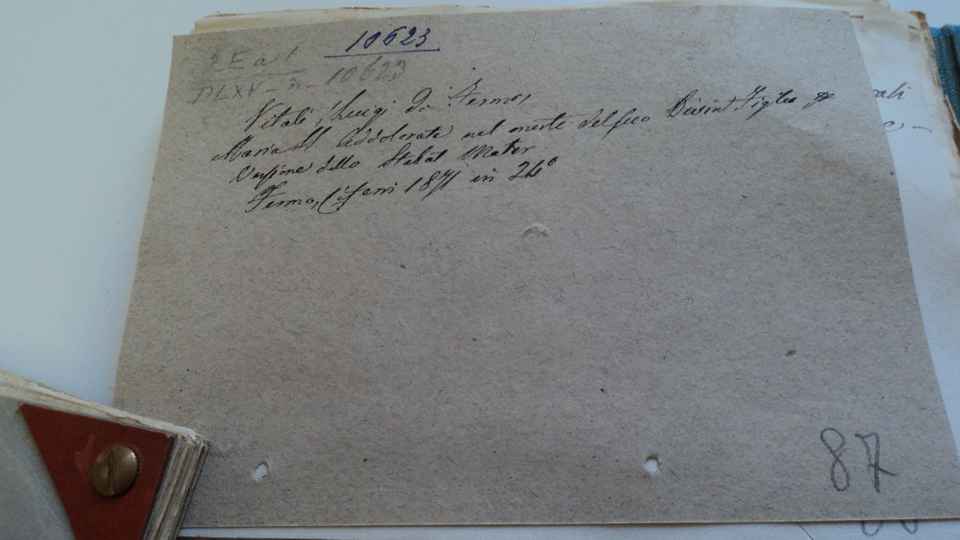 10623
2 E a 1
DLXV - n - 10623
Vitali, Luigi da Fermo,
Maria SS Addolorata nel morte del suo Divin Figlio
Versione dello Stabat Mater
Fermo, Ciferri 1871 in 24°
ali
e -
87